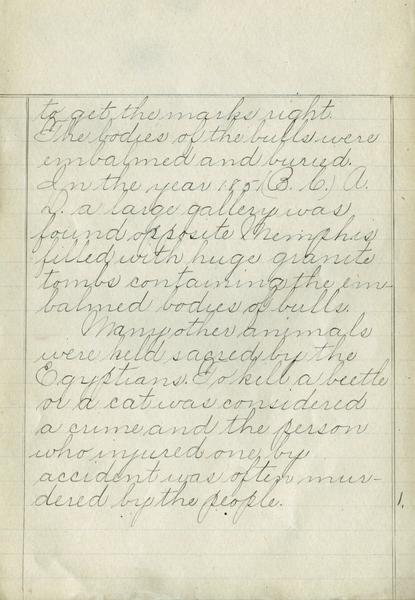 to get the marks right.
The bodies of the bulls were
embalmed and buried.
In the year 1851(B. C.) A.
D. a large gallery was
found opposite Memphis,
filled with huge granite
tombs containing the em-
balmed bodies of bulls.
Many other animals
were held sacred by the
Egyptians. To kill a beetle
or a cat was considered
a crime and the person
who injured one, by
accident was often mur-
dered by the people.
1.